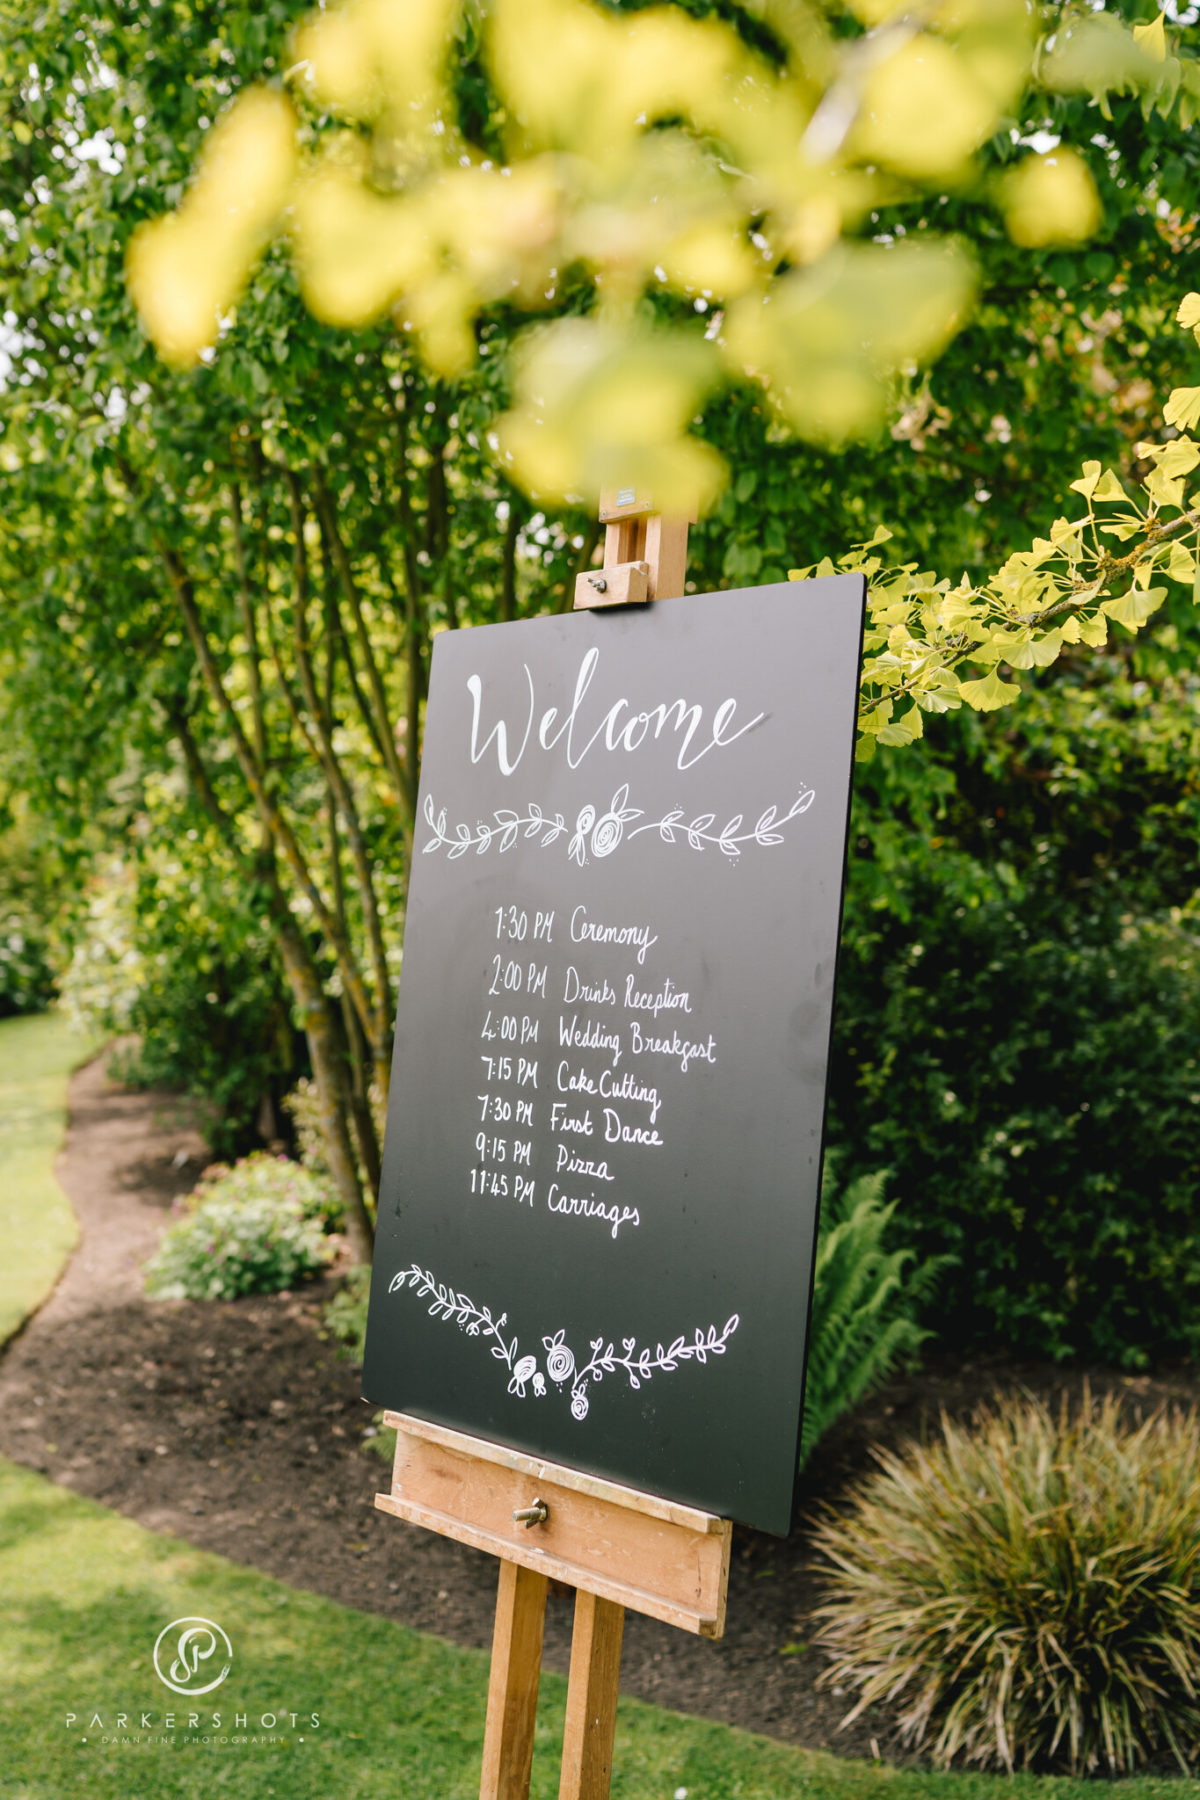 Welcome
1:30 PM Ceremony
2:00 PM Drinks Reception
4:00 PM Wedding Breakfast
7:15 PM Cake Cutting
7:30 PM First Dance
9:15 PM Pizza
11:45 PM Carriages
PARKERSHOTS
• DAMN FINE PHOTOGRAPHY •